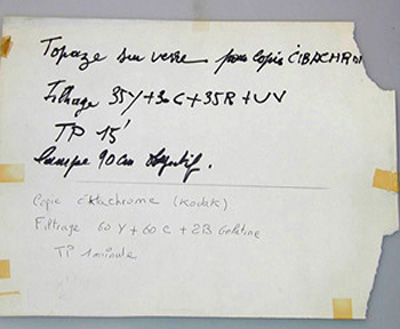 Topaze sur verre pour copie CIBACHROM
Filtrage 35Y+30C+35R+UV
TP 15'
Lampe 90cm Objectif.
Copie Ektachrome (Kodak)
Filtrage 60 Y + 60 C + 2B Gelatine
TP 1 minute